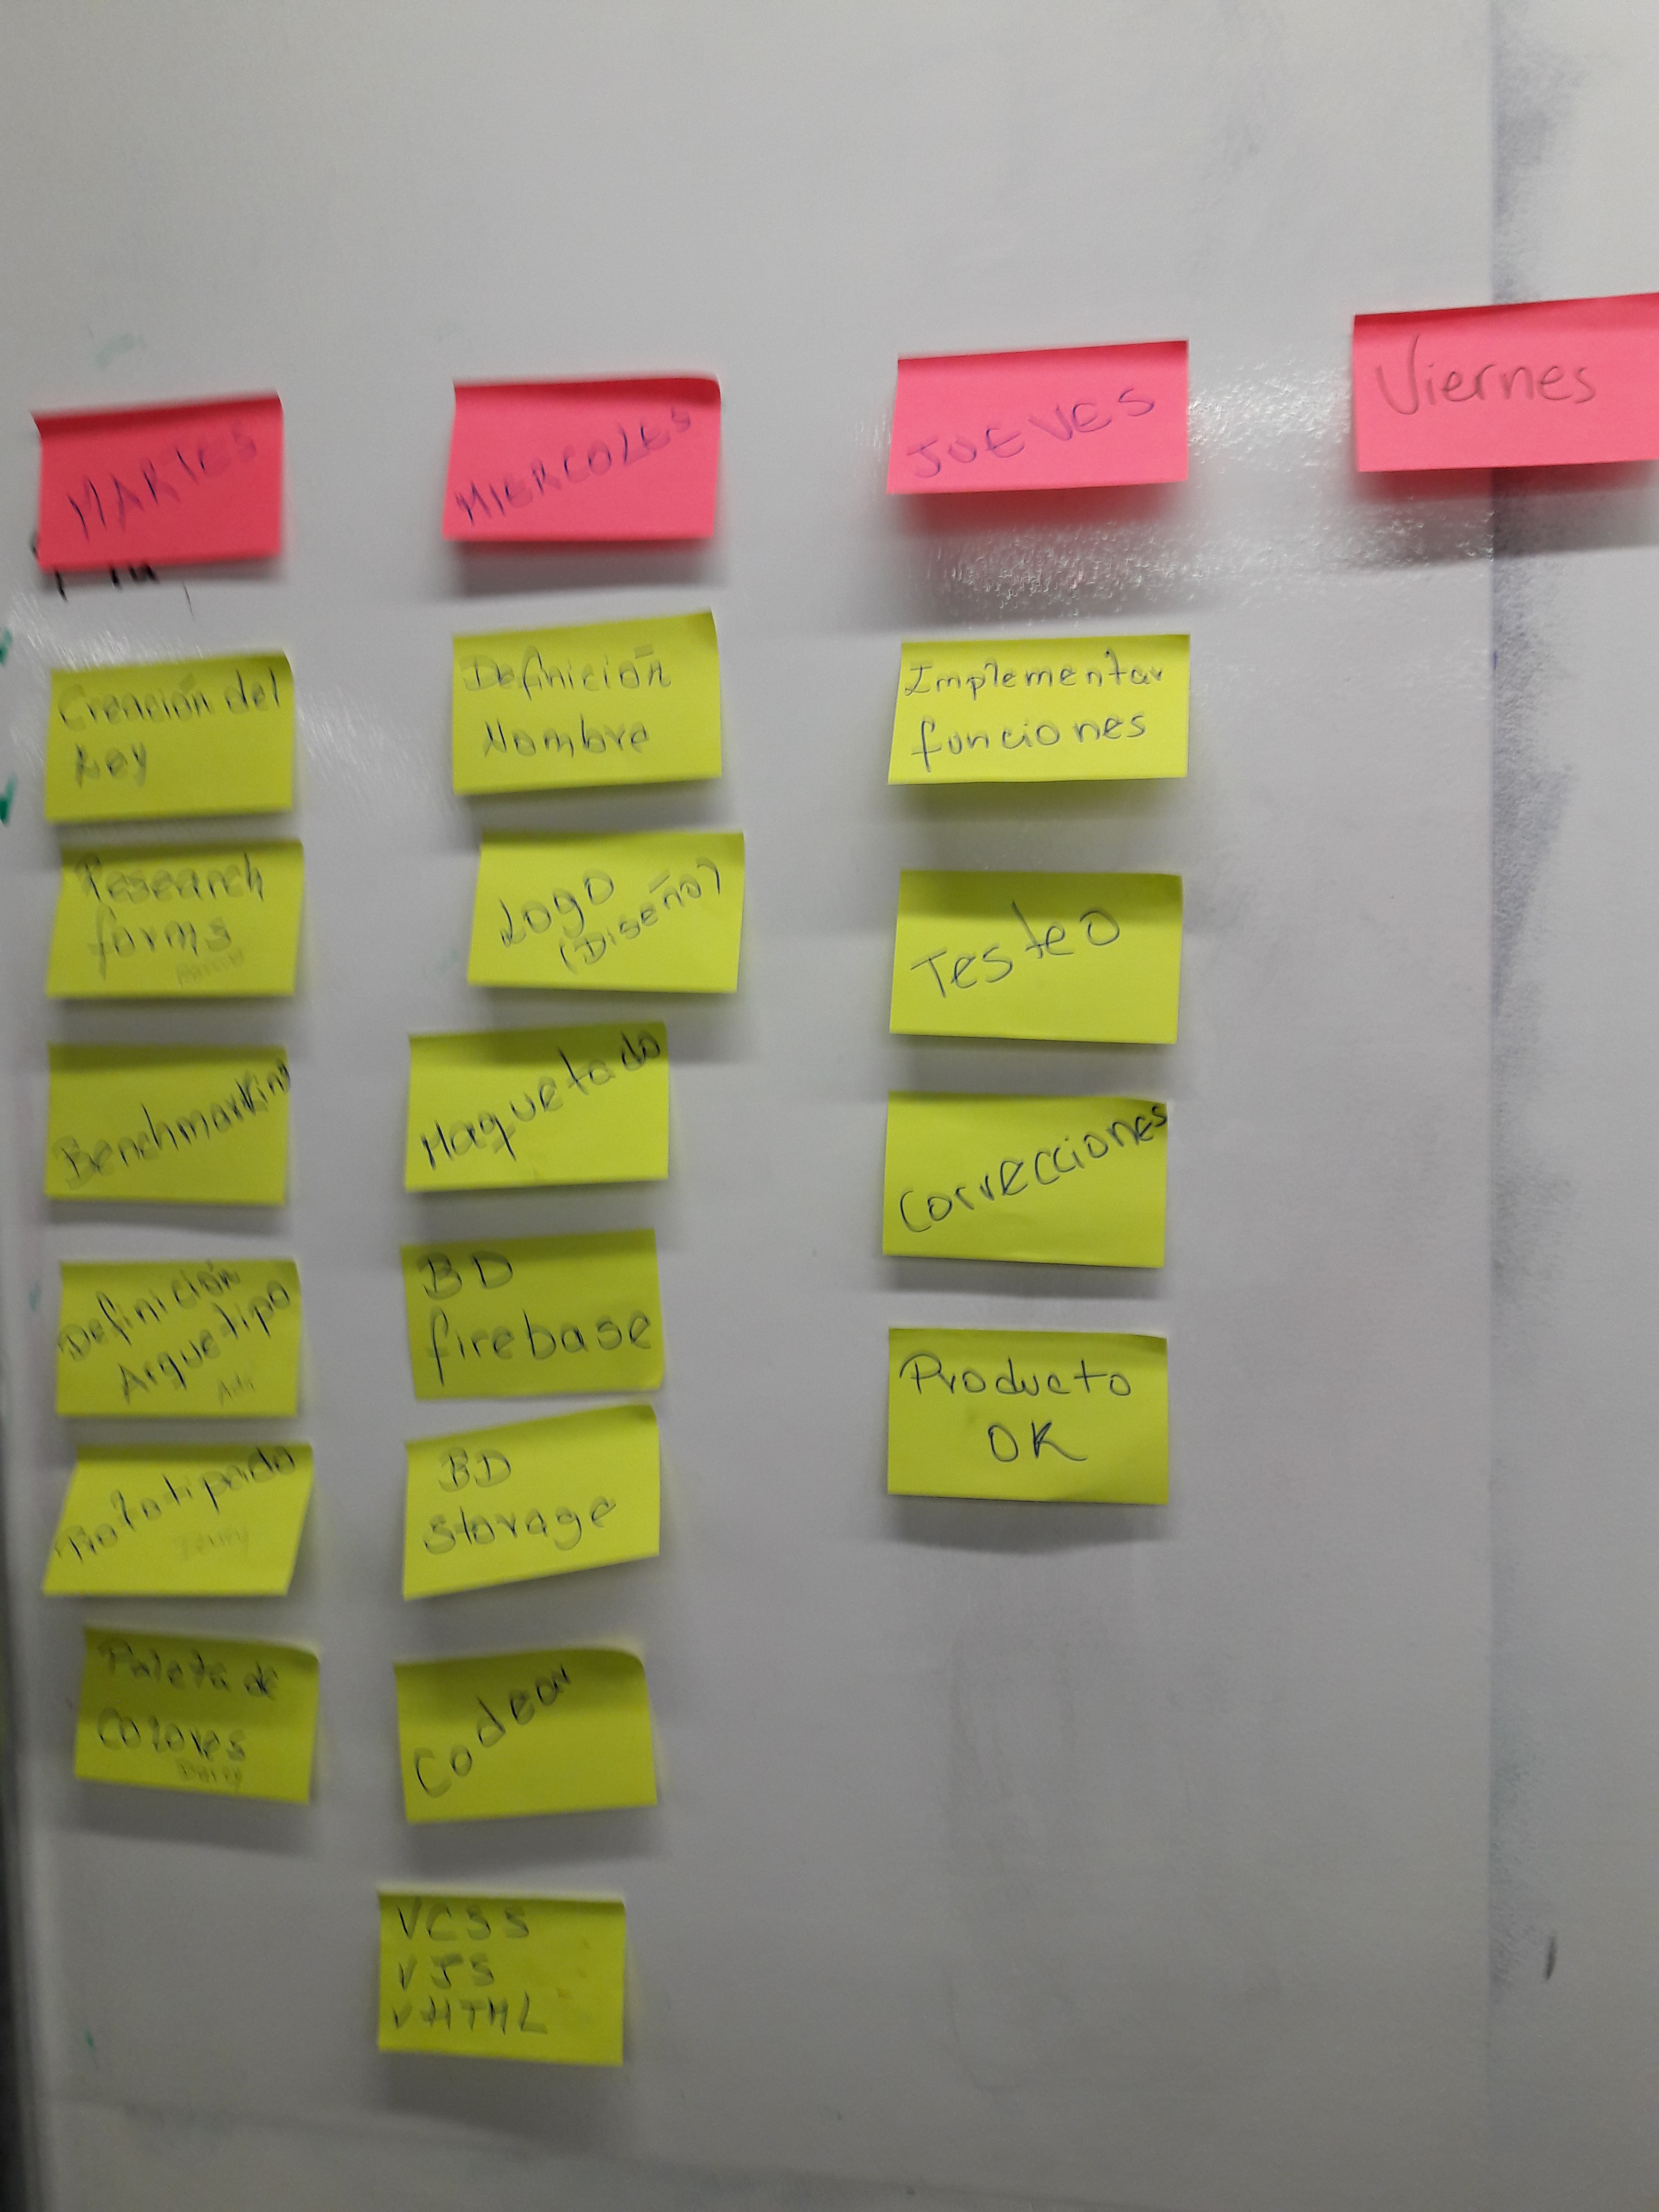 MARTES
Creación del
Key
Research
forms
Benchmarking
Definición
Arquetipo
Adi
Prototipado
Paleta de
Colores
MIERCOLES
Definición
Nombre
Logo
(Diseño)
Maquetado
BD
firebase
BD
storage
Codear
VCSS
VJS
VHTML
JUEVES
Implementar
funciones
Testeo
Correcciones
Producto
OK
Viernes